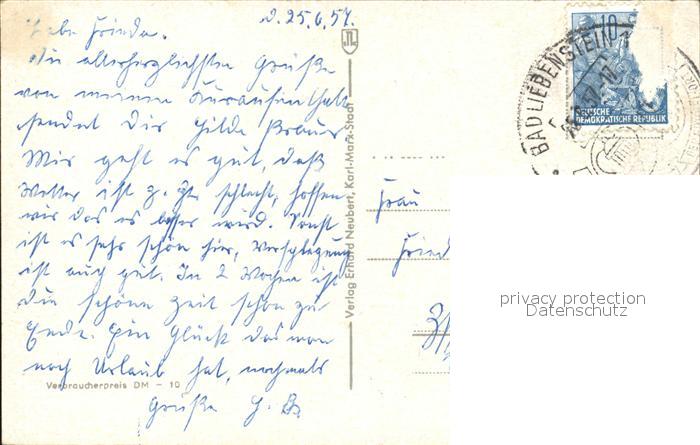 d. 25.6.57.
Liebe Frieda.
Die allerherzlichsten Grüße
von meinem Kuraufenthalt
sendet Dir Hilde
Mir geht es gut, daß
Wetter ist z. Zt. schlecht, hoffen
wir das es besser wird. Sonst
ist es sehr schön hier, Verpflegung
ist auch gut. In 2 Wochen ist
die schöne Zeit schon zu
Ende. Ein Glück das man
noch Urlaub hat, nochmals
Grüße H.
Verbraucherpreis DM - 10
Verlag Erhard Neubert, Karl-Marx-Stadt
BAD LIEBENSTEIN
10
DEUTSCHE
DEMOKRATISCHE REPUBLIK
Frau
Fried
privacy protection
Datenschutz